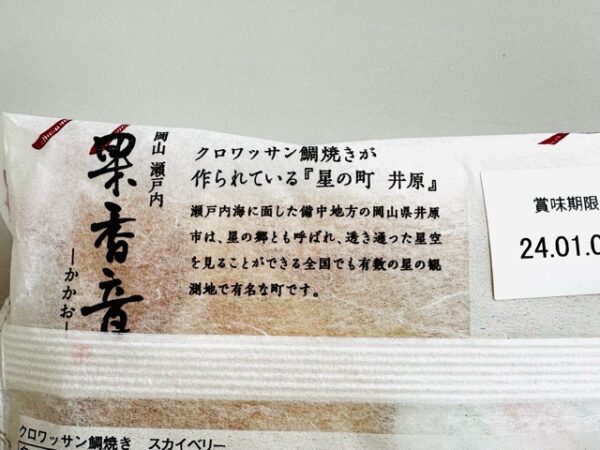 岡山 瀬戸内
果香音
―かかお―
クロワッサン鯛焼きが
作られている『星の町 井原』
瀬戸内海に面した備中地方の岡山県井原
市は、星の郷とも呼ばれ、透き通った星空
を見ることができる全国でも有数の星の観
測地で有名な町です。
賞味期限
24.01.0
クロワッサン鯛焼き スカイベリー